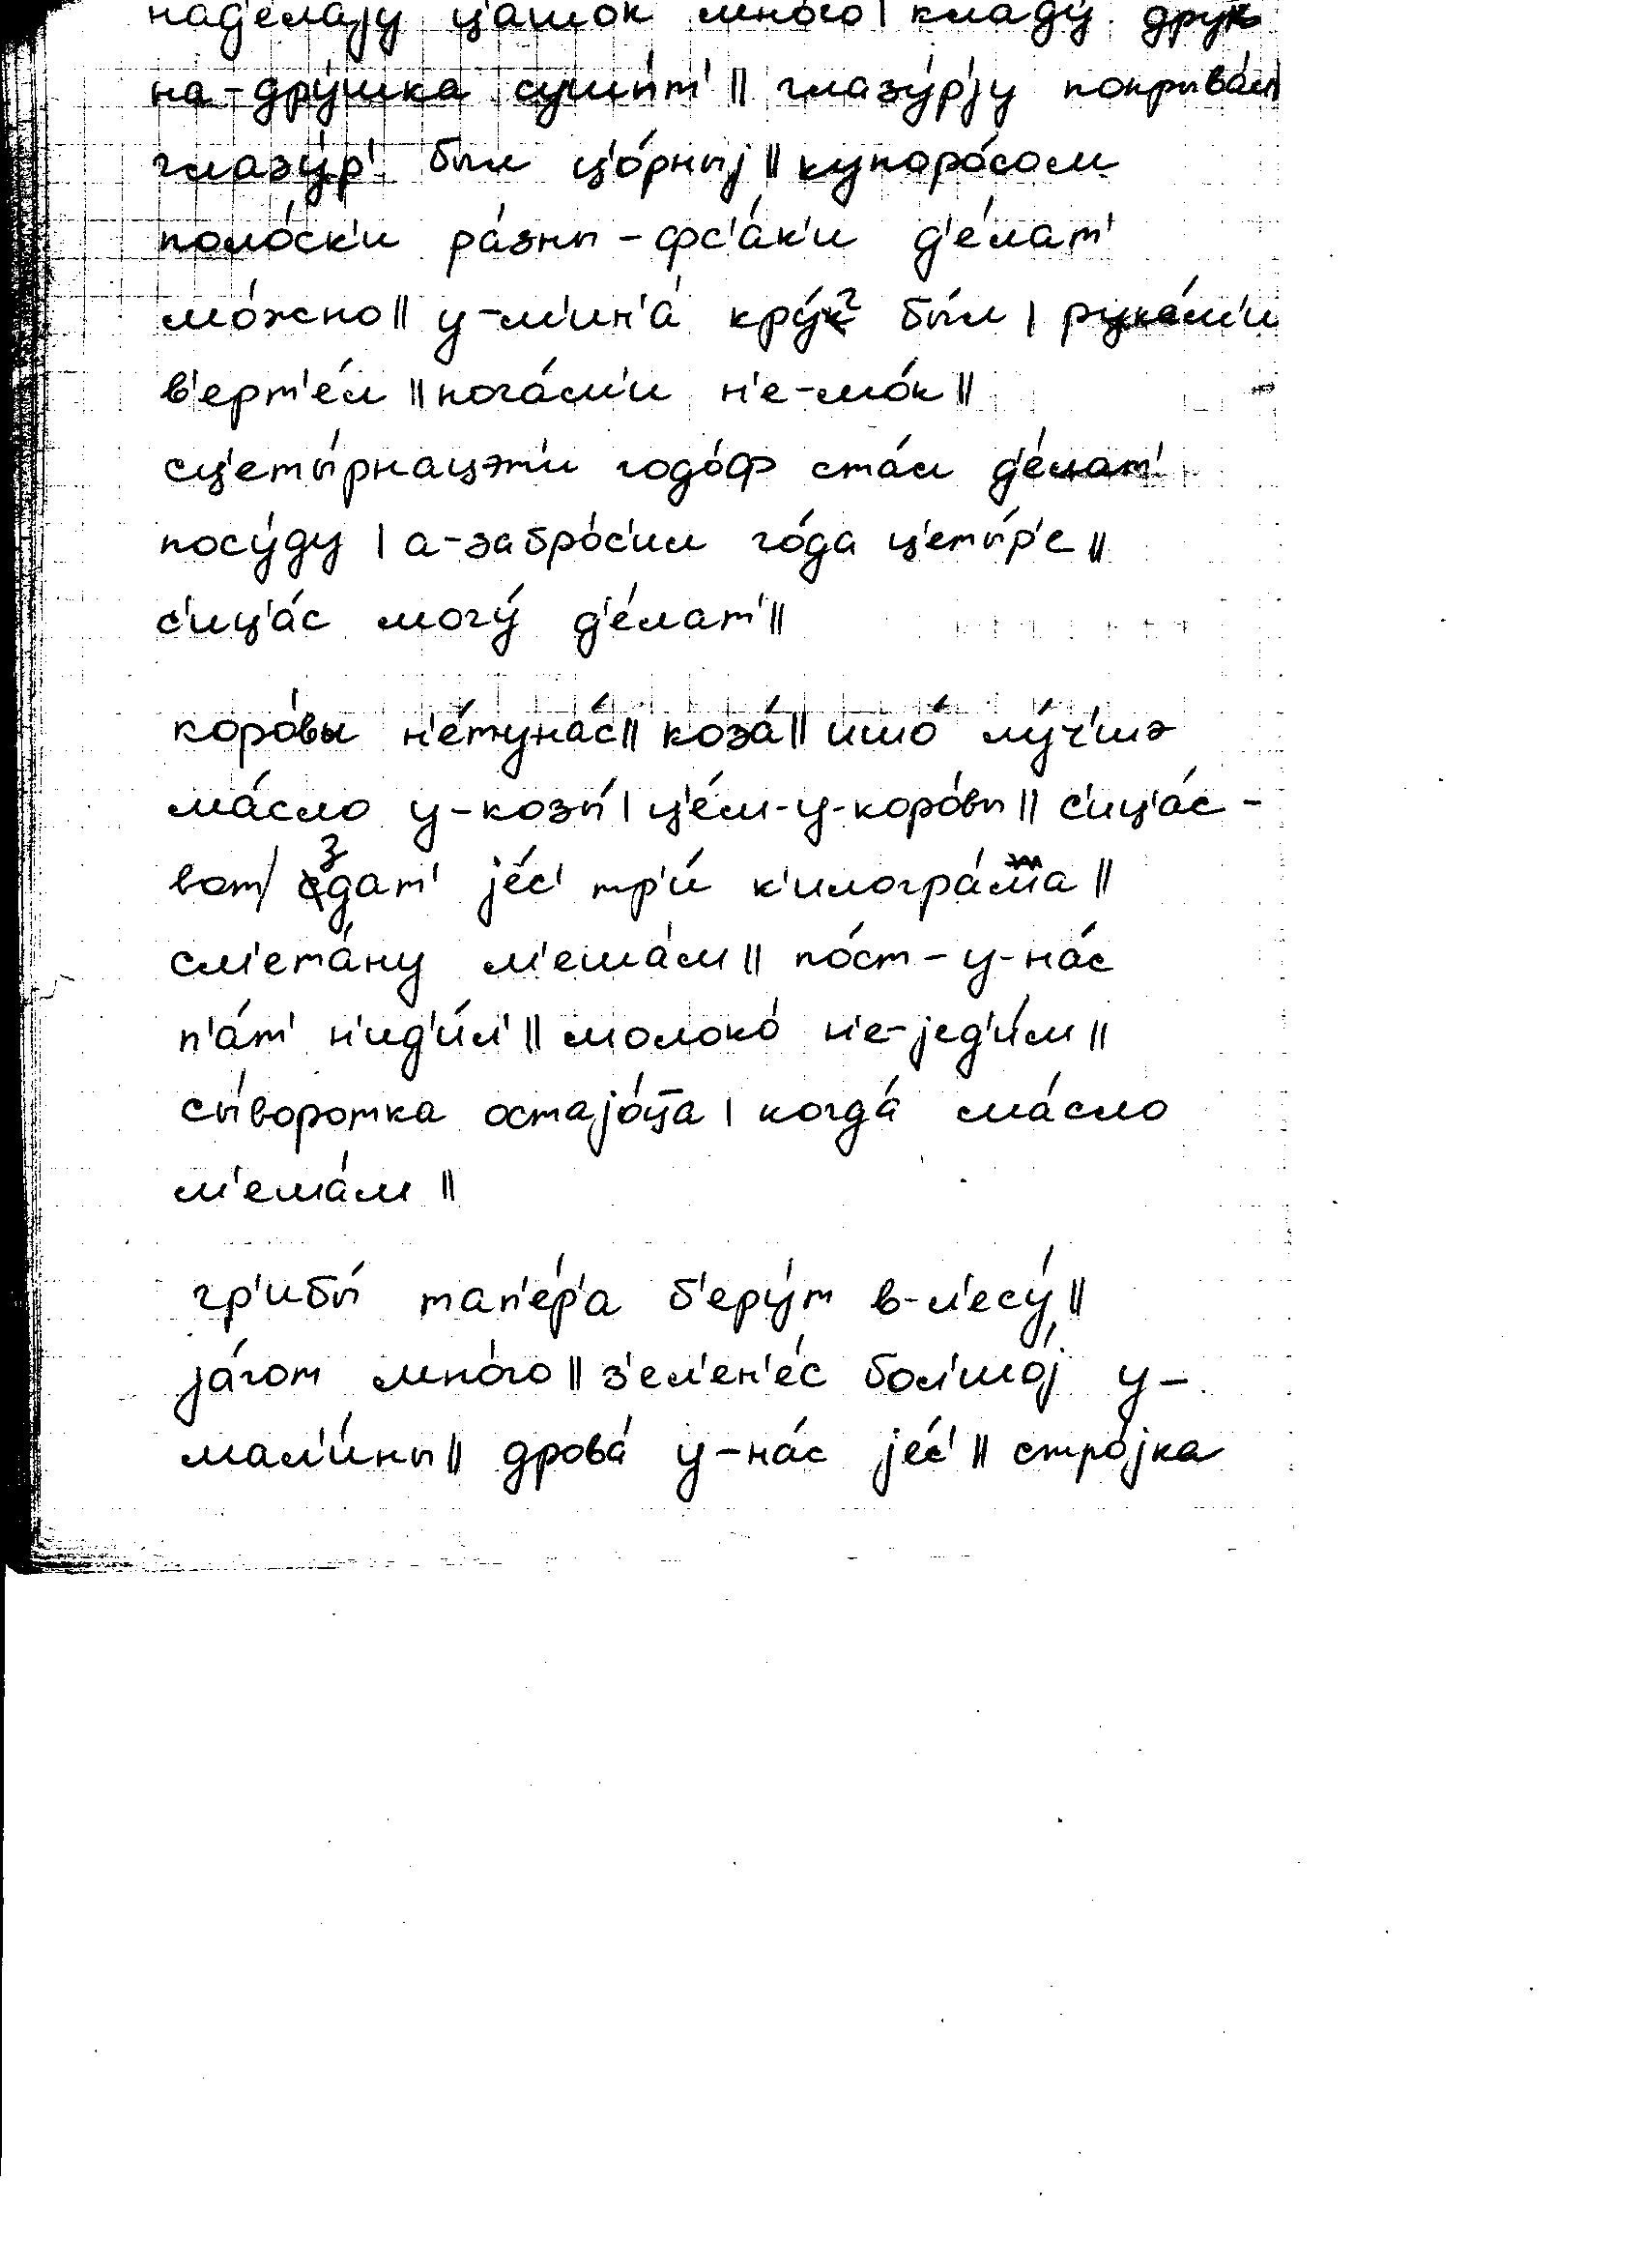 над'е́лају ц'а́шок мно́го | кладу́ друк
на-дру́шка суши́т' || глазу́р'ју покрыва́л
глазу́р' был ц'о́рныј || купоро́сом
поло́ск'и ра́зны-фс'а́к'и д'е́лат'
мо́жно || у-м'ин'а́ кру́г бы́л | рука́м'и
в'ерт'е́л || нога́м'и н'е-мо́к ||
сц'еты́рнацэт'и годо́ф ста́л д'е́лат'
посу́ду | а-забро́с'ил го́да ц'еты́р'е ||
с'иц'а́с могу́ д'е́лат' ||
коро́вы н'е́туна́с || коза́ || ишо́ лу́ч'шэ
ма́сло у-козы́ | ц'е́м-у-коро́вы || с'иц'а́с-
вот / здат' је́с' тр'и́ к'илогра́ма ||
см'ета́ну м'еша́м || по́ст-у-на́с
п'а́т' н'ид'и́л' || молоко́ н'е-јед'и́м ||
сы́воротка остајо́ц̄а | когда́ ма́сло
м'еша́м ||
гр'ибы́ тап'е́р'а б'еру́т в-л'есу́ ||
ја́гот мно́го || з'ел'ен'е́с бол'шо́ј у-
мал'и́ны || дрова́ у-на́с је́с' || стро́јка